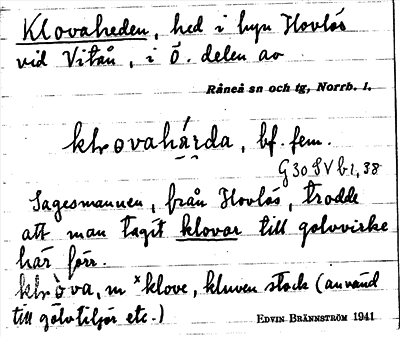 Klovaheden, hed i byn Hovlös
vid Vitån, i ö. delen av
Råneå sn och tg, Norrb. l.
klovahéda, bf. fem.
G30SVb1,38
Sagesmannen, från Hovlös, trodde
att man tagit klovor till golvvirke
här förr.
klòva, m ˣklove, kluven stock (använd
till golvtiljor etc.)
EDVIN BRÄNNSTRÖM 1941